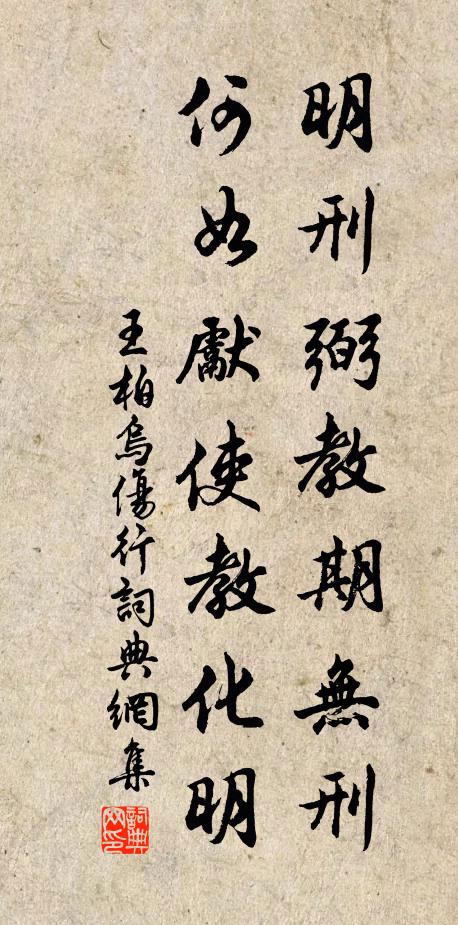 明刑弼教期無刑
何如獻使教化明
王柏烏傷行詞典網集
詞典網印